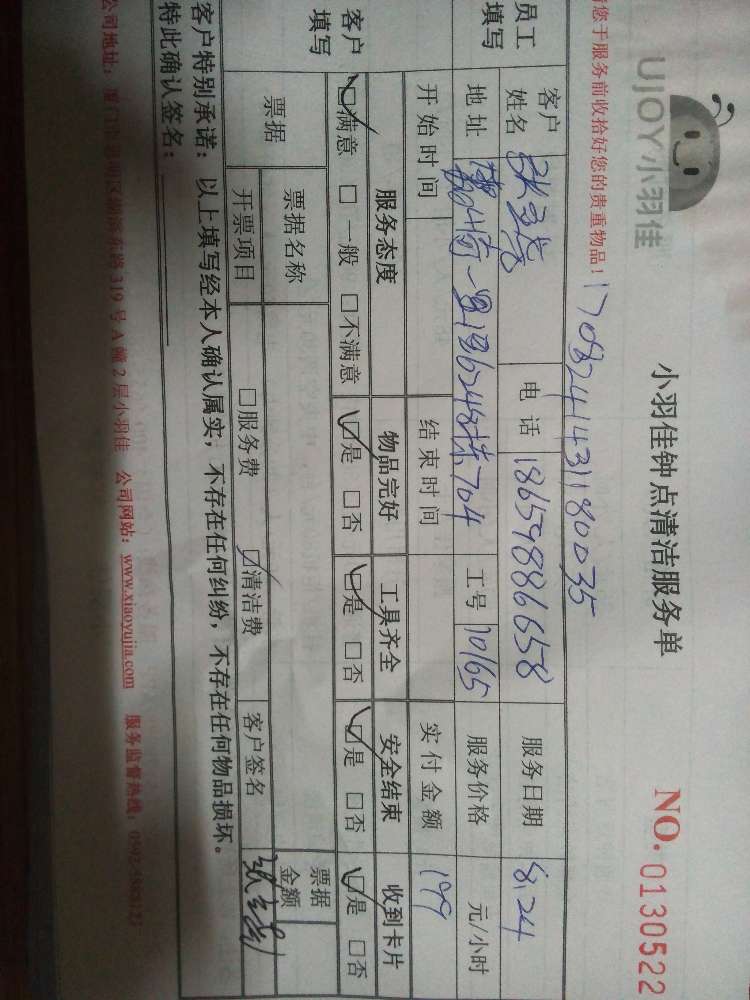 UJOY小羽佳
小羽佳钟点清洁服务单
NO. 0130522
您于服务前收拾好您的贵重物品！
1708241431180035
员工填写
客户姓名
电话 18659886658
服务日期 8.24
地址
704
工号 70165
服务价格 元/小时
开始时间
结束时间
实付金额 199
客户填写
服务态度 物品完好 工具齐全 安全结束 收到卡片
☑满意 □一般 □不满意 ☑是 □否 ☑是 □否 ☑是 □否 ☑是 □否
票据 票据名称 票据金额
开票项目 □服务费 ☑清洁费 客户签名
客户特别承诺：以上填写经本人确认属实，不存在任何纠纷，不存在任何物品损坏。
特此确认签名：
公司地址：厦门市思明区湖滨东路 319 号 A 幢 2 层小羽佳 公司网站：www.xiaoyujia.com 服务监督热线：